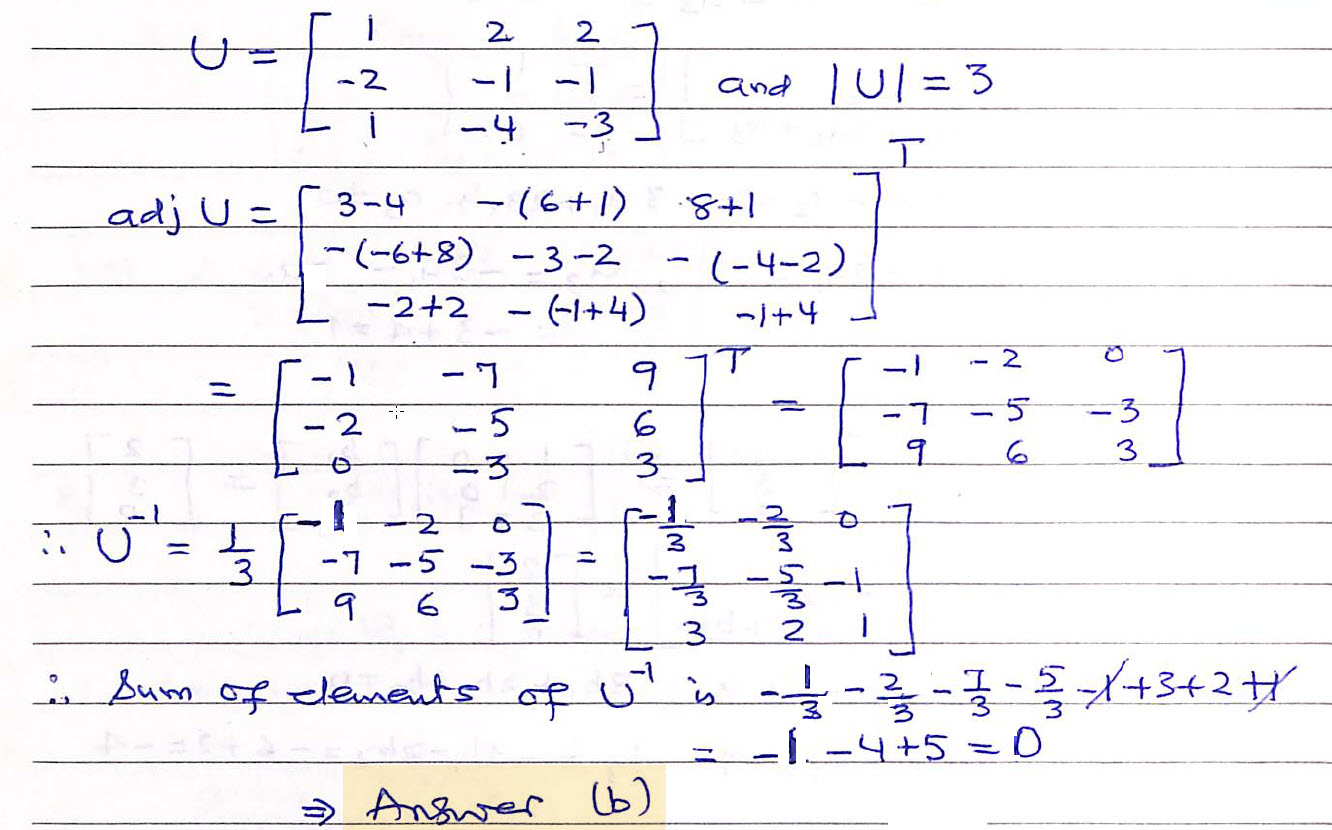 U = [ 1 2 2 ; -2 -1 -1 ; 1 -4 -3 ] and |U| = 3
adj U = [ 3-4 -(6+1) 8+1 ; -(-6+8) -3-2 -(-4-2) ; -2+2 -(-1+4) -1+4 ]^T
= [ -1 -7 9 ; -2 -5 6 ; 0 -3 3 ]^T = [ -1 -2 0 ; -7 -5 -3 ; 9 6 3 ]
∴ U^-1 = 1/3 [ -1 -2 0 ; -7 -5 -3 ; 9 6 3 ] = [ -1/3 -2/3 0 ; -7/3 -5/3 -1 ; 3 2 1 ]
∴ Sum of elements of U^-1 is -1/3 - 2/3 - 7/3 - 5/3 - 1 + 3 + 2 + 1
= -1 - 4 + 5 = 0
⇒ Answer (b)